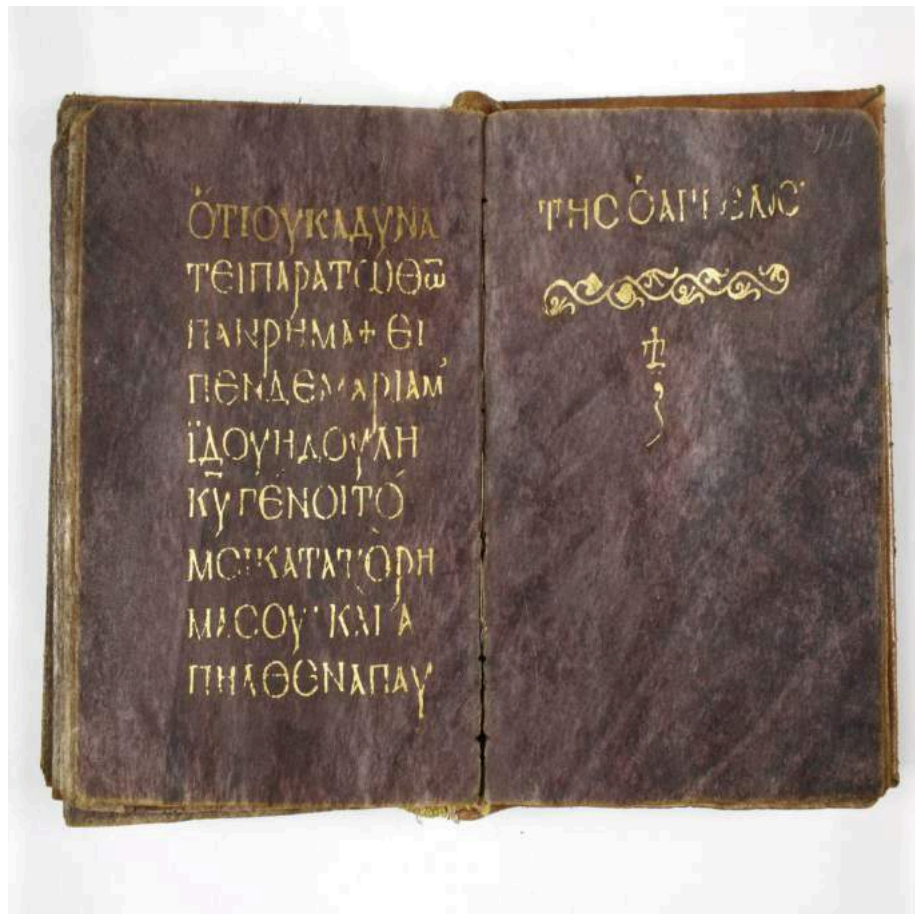 ὍΤΙΟΥΚΑΔΥΝΑ
ΤΕΙΠΑΡΑΤΩΘΩ̅
ΠΑΝΡΗΜΑ+ΕΙ
ΠΕΝΔΕΜΑΡΙΑΜ
ΪΔΟΥΗΔΟΥΛΗ
Κ̅Υ̅ΓΕΝΟΙΤΟ
ΜΟΙΚΑΤΑΤΟΡΗ
ΜΑΣΟΥ·ΚΑΙΑ
ΠΗΛΘΕΝΑΠΑΥ
ΤΗΣὉΑΓΓΕΛΟΣ·
114